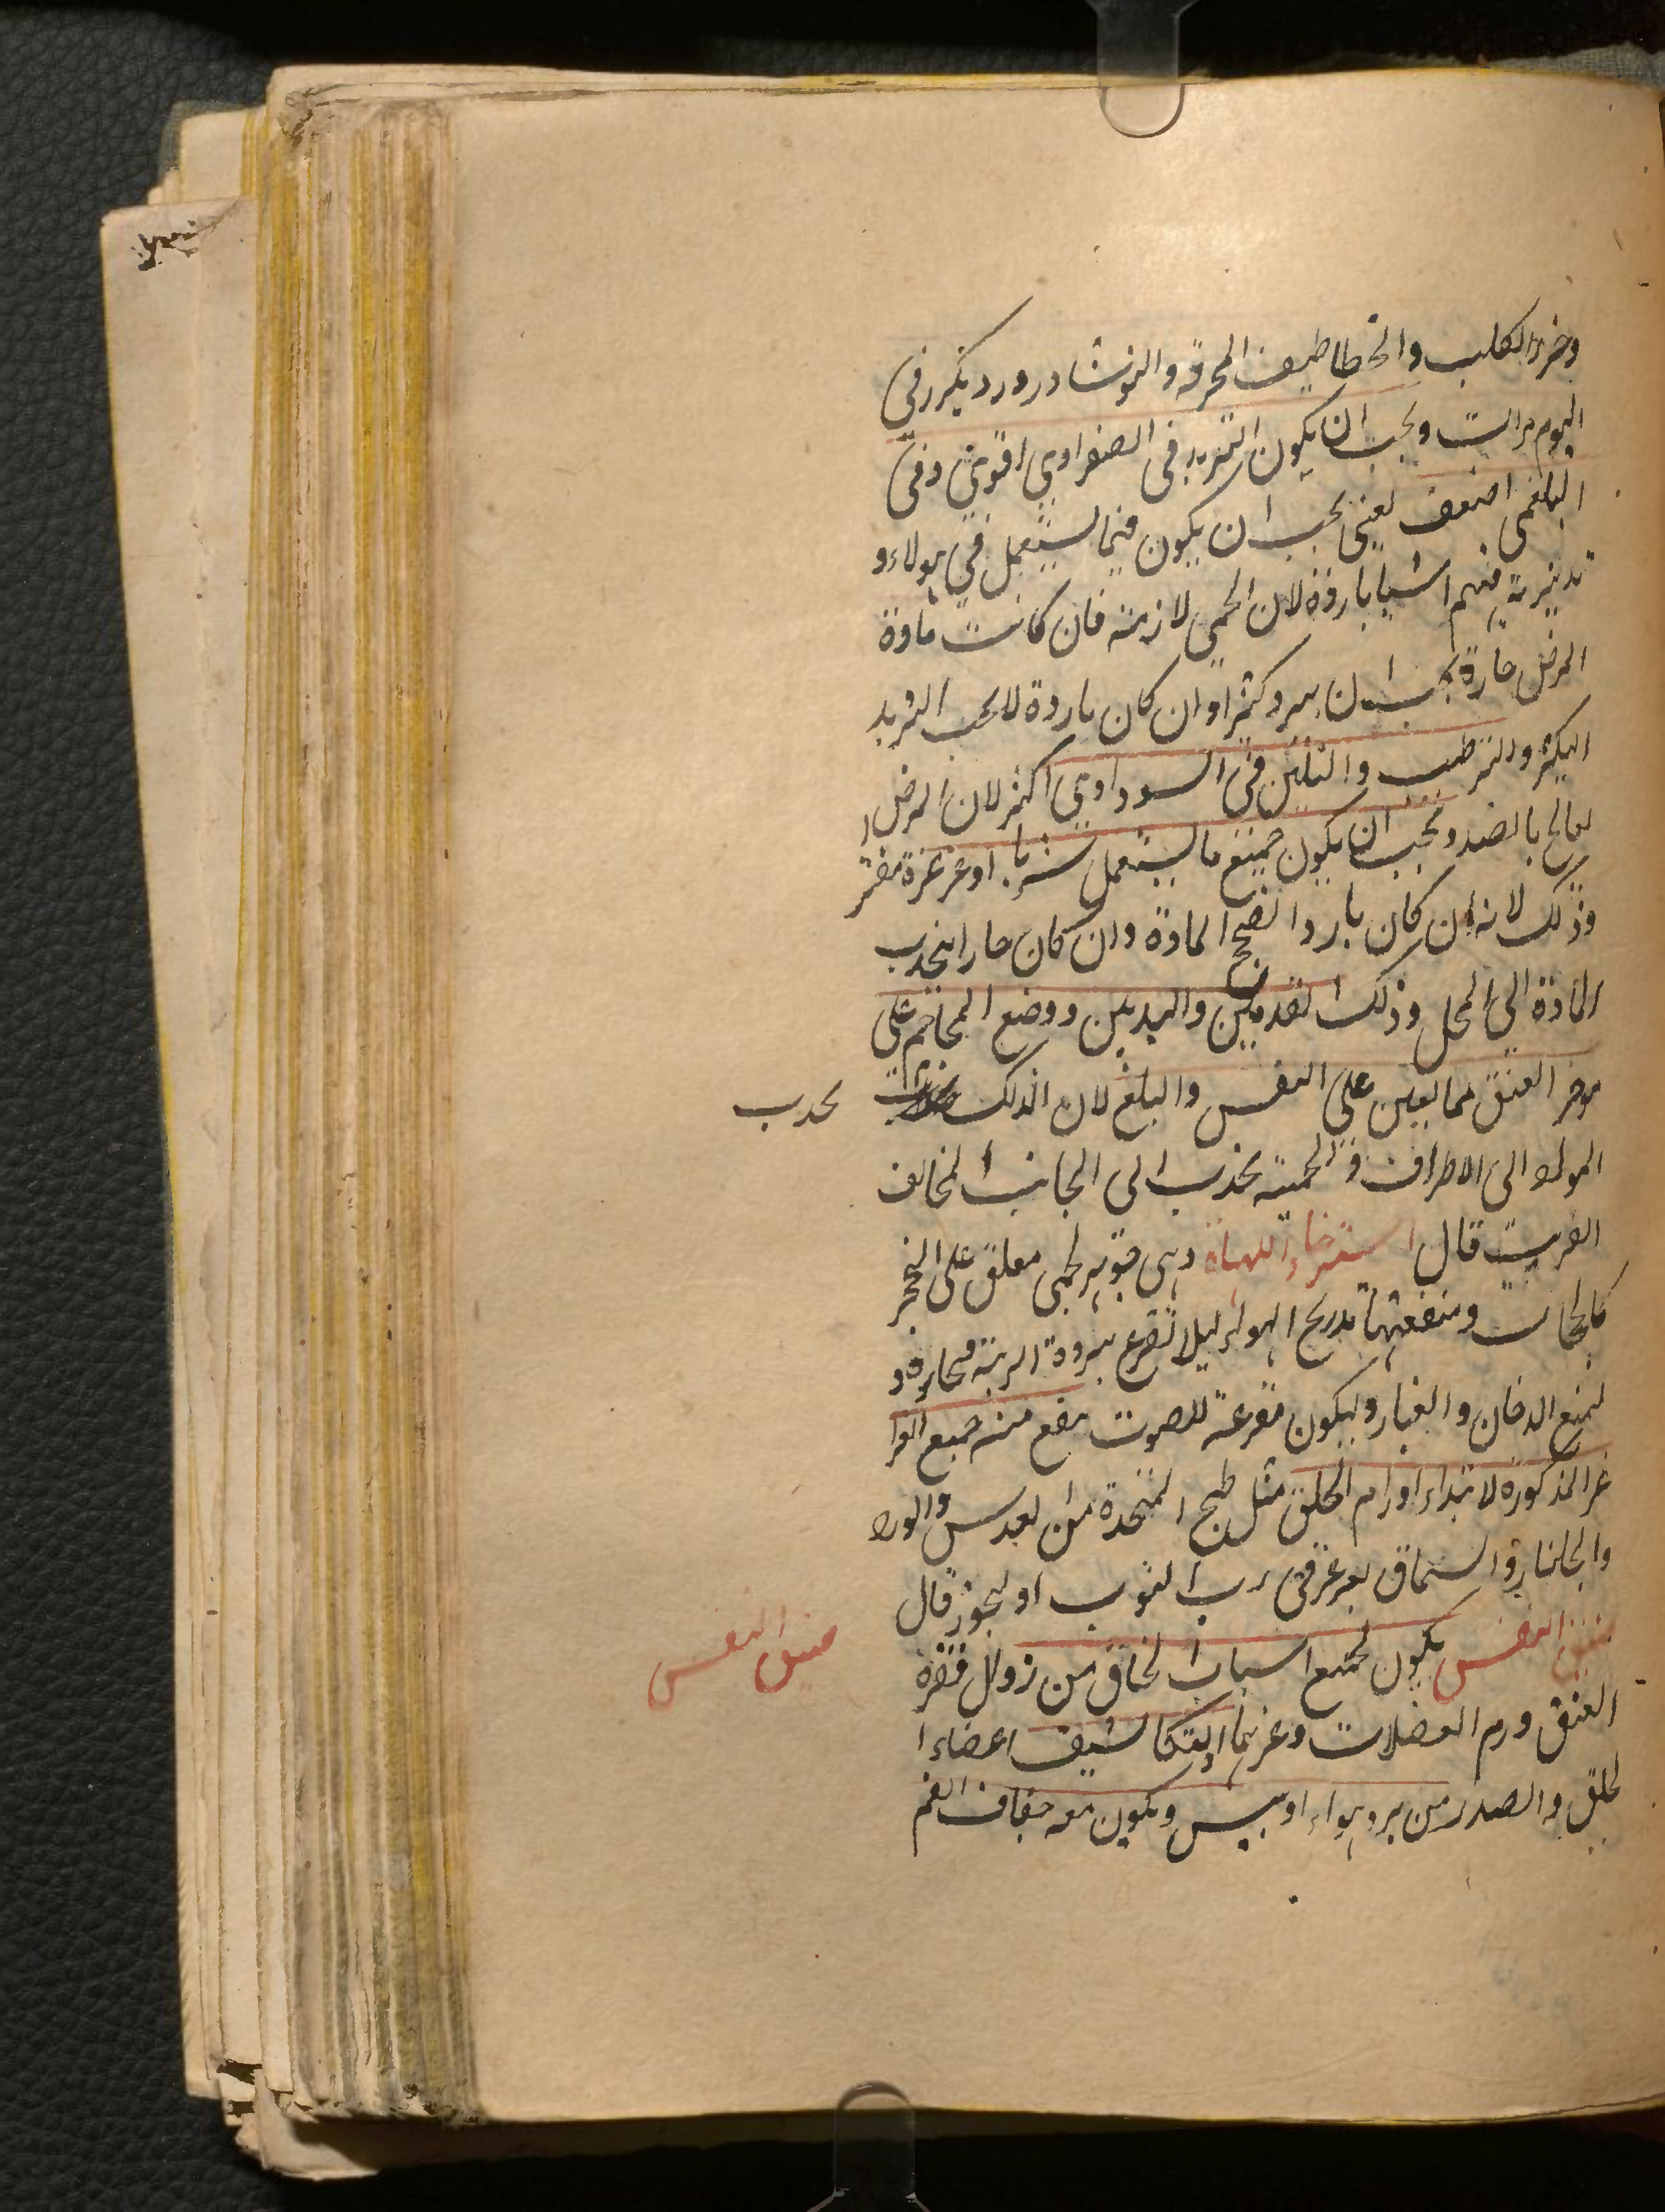 وخرء الكلب والخطاطيف المحرقة والنوشادر ورد يكرر في
اليوم مرات ويجب ان يكون التبريد في الصفراوي اقوى وفي
البلغمي اضعف يعني يجب ان يكون فيما يستعمل في هولاء و
تدبيرته منهم اشيا باردة لان الحمى لازمة فان كانت مادة
المرض حارة يجب ان يبرد كثيرا وان كان باردة لا يجب التبريد
الكثير والترطيب والتليين في السوداوي اكثر لان المرض ا
يعالج بالضد ويجب ان يكون جميع ما يستعمل شربا او غرغرة مفتر
وذلك لانه ان كان باردا نضج المادة وان كان حارا ينجذب
المادة الى المحل وذلك القدمين واليدين ووضع المحاجم على
موخر العنق مما يعين على النفس والبلغ لان الدلك
يجذب
المواد الى الاطراف و الحجمية يجذب الى الجانب المخالف
القريب قال استرخاء اللهاة وهى جوهر لحمي معلق على الحنجر
كالحجاب ومنفعتها تدريج الهواء ليلا تقرع ببرودة الرية محاره و
ليمنع الدخان والغبار وليكون مقرعة للصوت ينفع منه جميع الغرا
غر المذكورة لابتداء اورام الحلق مثل طبيخ المتخذة من العدس والورد
والجلنار والسماق يغرغر في رب التوت او الجوز قال
ضيق النفس يكون لجميع اسباب الخناق من زوال فقرة
ضيق النفس
العنق ورم العضلات وغيرهما او لتكاثيف اعضاء ا
لحلق والصدر من برد هواء او يبس ويكون معه جفاف الفم